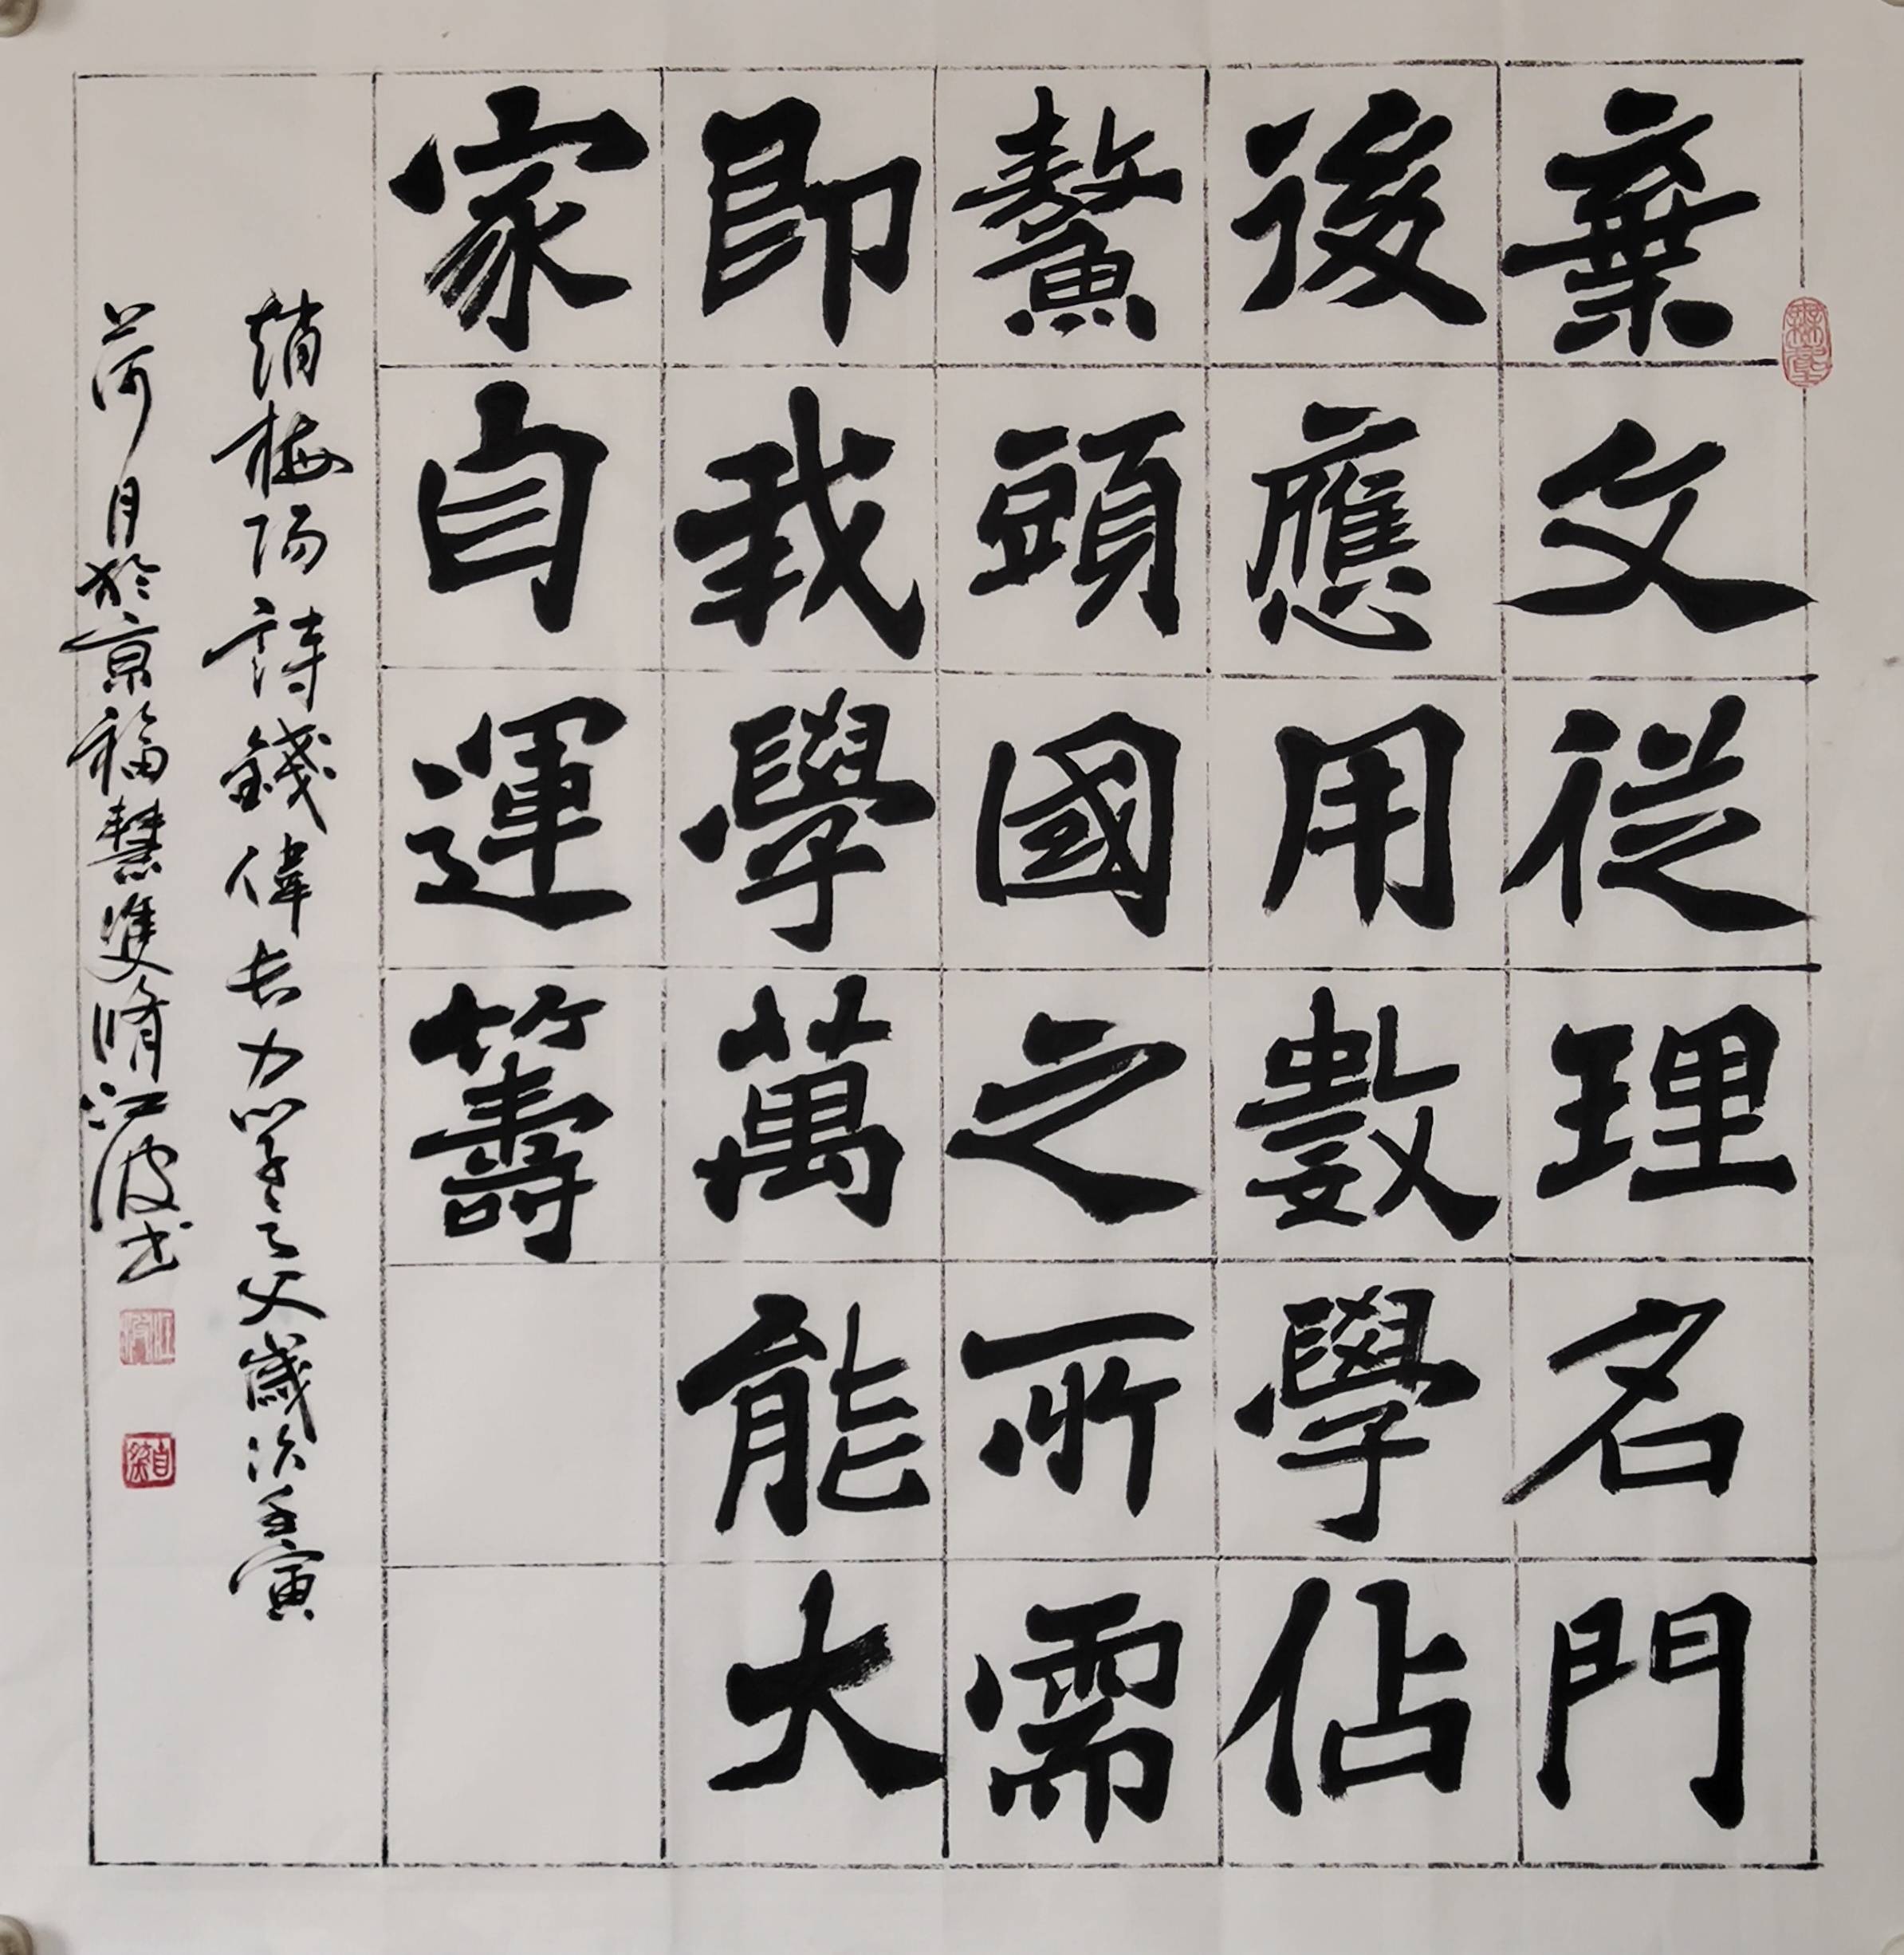 棄文從理名門
後應用數學佔
鰲頭國之所需
即我學萬能大
家自運籌
趙梅陽詩錢偉長力學之父歲次壬寅
荷月於京福慧雙脩江波书